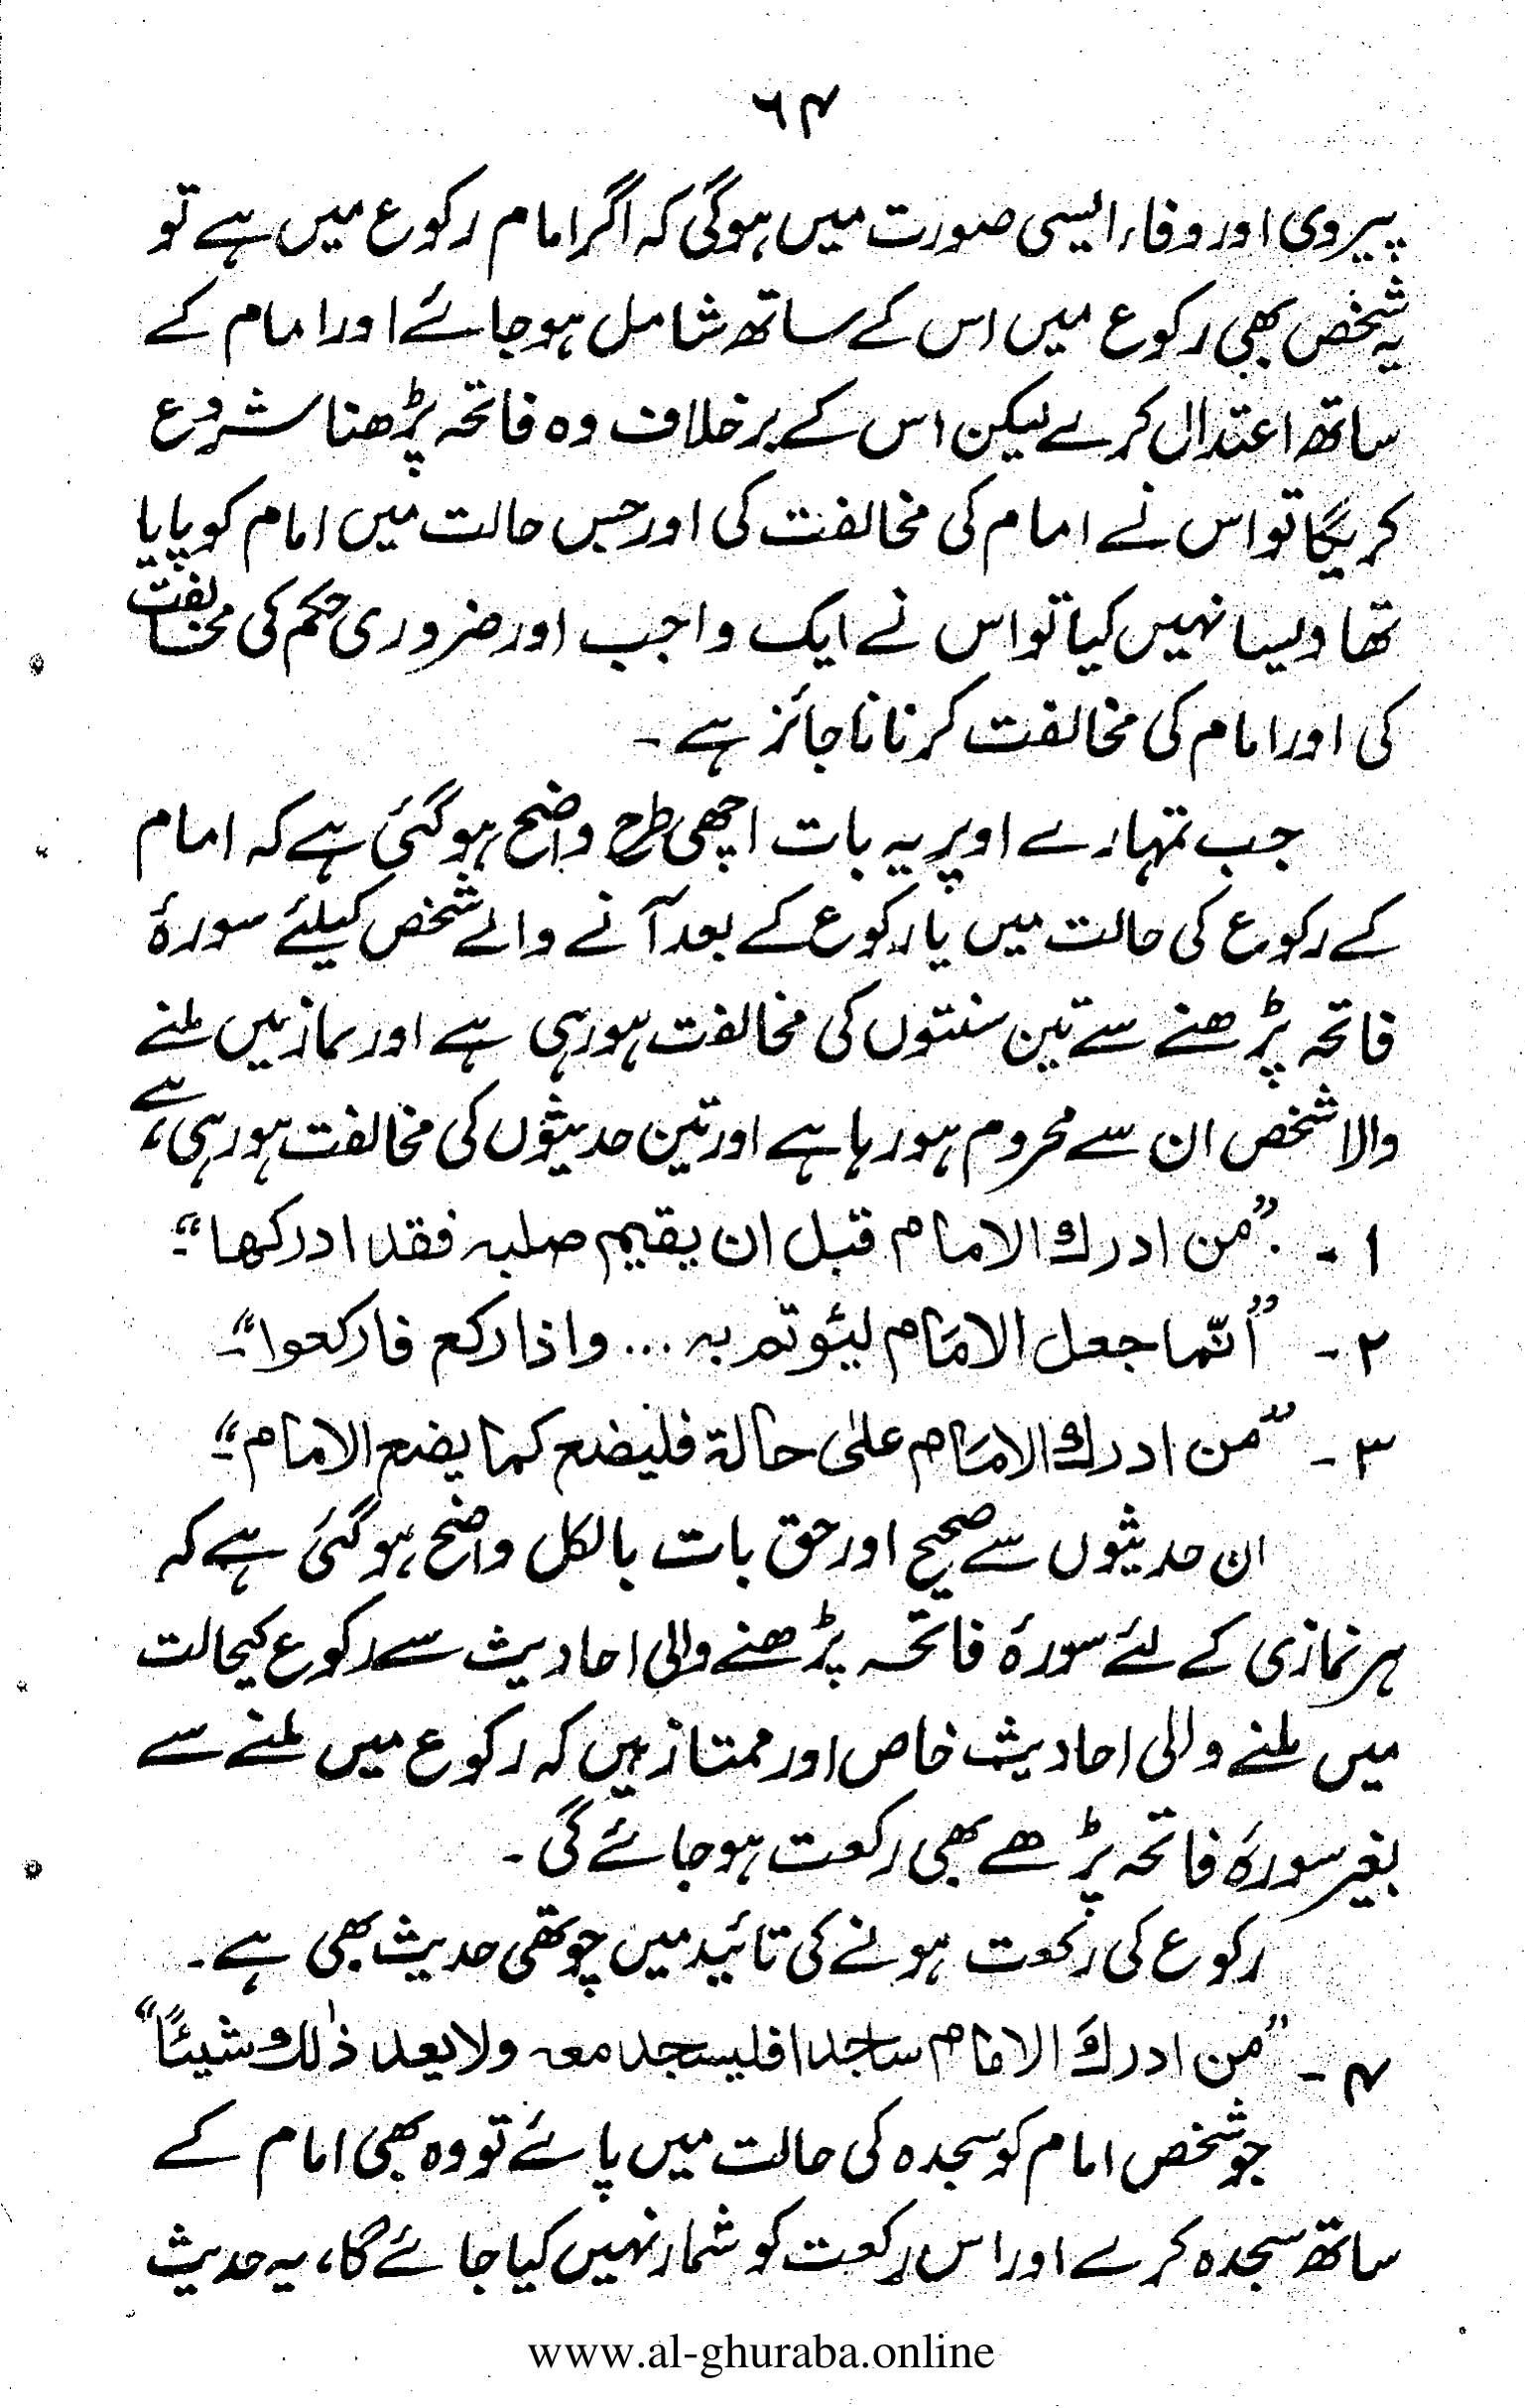 ۶۴
پیروی اور وفاء ایسی صورت میں ہوگی کہ اگر امام رکوع میں ہے تو
یہ شخص بھی رکوع میں اس کے ساتھ شامل ہو جائے اور امام کے
ساتھ اعتدال کرے لیکن اس کے برخلاف وہ فاتحہ پڑھنا شروع
کریگا تو اس نے امام کی مخالفت کی اور جس حالت میں امام کو پایا
تھا ویسا نہیں کیا تو اس نے ایک واجب اور ضروری حکم کی مخالفت
کی اور امام کی مخالفت کرنا ناجائز ہے ۔
جب تمہارے اوپر یہ بات اچھی طرح واضح ہوگئی ہے کہ امام
کے رکوع کی حالت میں یا رکوع کے بعد آنے والے شخص کیلئے سورۂ
فاتحہ پڑھنے سے تین سنتوں کی مخالفت ہو رہی ہے اور نماز میں ملنے
والا شخص ان سے محروم ہو رہا ہے اور تین حدیثوں کی مخالفت ہو رہی ہے،
۱ - ”من ادرك الامام قبل ان يقيم صلبه فقد ادركها“۔
۲ - ”اَنّما جعل الامَام ليئوتم به ... واذا ركع فاركعوا“۔
۳ - ”من ادرك الامَام علیٰ حالة فليضع كما يضع الامام“۔
ان حدیثوں سے صحیح اور حق بات بالکل واضح ہوگئی ہے کہ
ہر نمازی کے لئے سورۂ فاتحہ پڑھنے والی احادیث سے رکوع کیحالت
میں ملنے والی احادیث خاص اور ممتاز ہیں کہ رکوع میں ملنے سے
بغیر سورۂ فاتحہ پڑھے بھی رکعت ہو جائے گی ۔
رکوع کی رکعت ہونے کی تائید میں چوتھی حدیث بھی ہے ۔
۴ - ”من ادركَ الامام ساجدا فليسجد معه ولا يعد ذٰلك شيئًا“
جو شخص امام کو سجدہ کی حالت میں پائے تو وہ بھی امام کے
ساتھ سجدہ کرے اور اس رکعت کو شمار نہیں کیا جائے گا، یہ حدیث
www.al-ghuraba.online